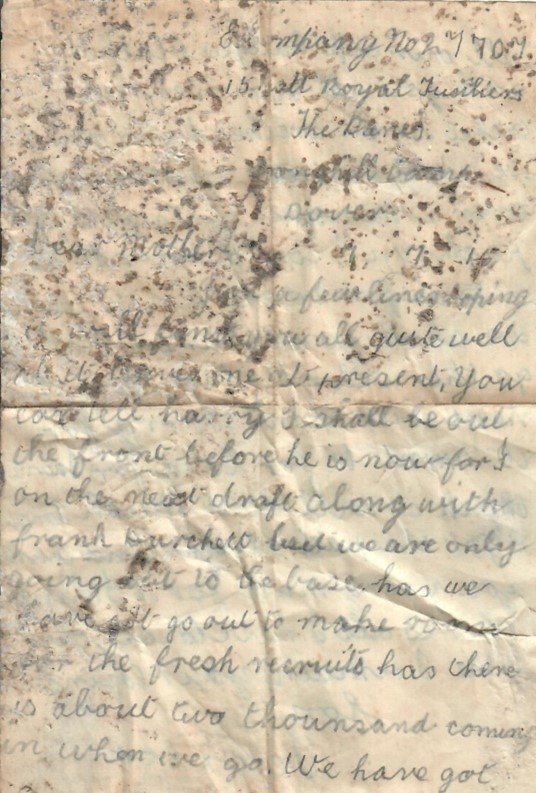 Company No L 7707
15 Batt Royal Fusiliers
The Danes
Camp
Dover
Dear Mother 7 15
Just a few lines hoping
it will find you all quite well
as it leaves me at present, You
can tell harry I shall be out
the front before he is now for I
on the next draft along with
frank Burchett but we are only
going out to the base has we
have got go out to make room
for the fresh recruits has there
is about two thounsand coming
in when we go. We have got